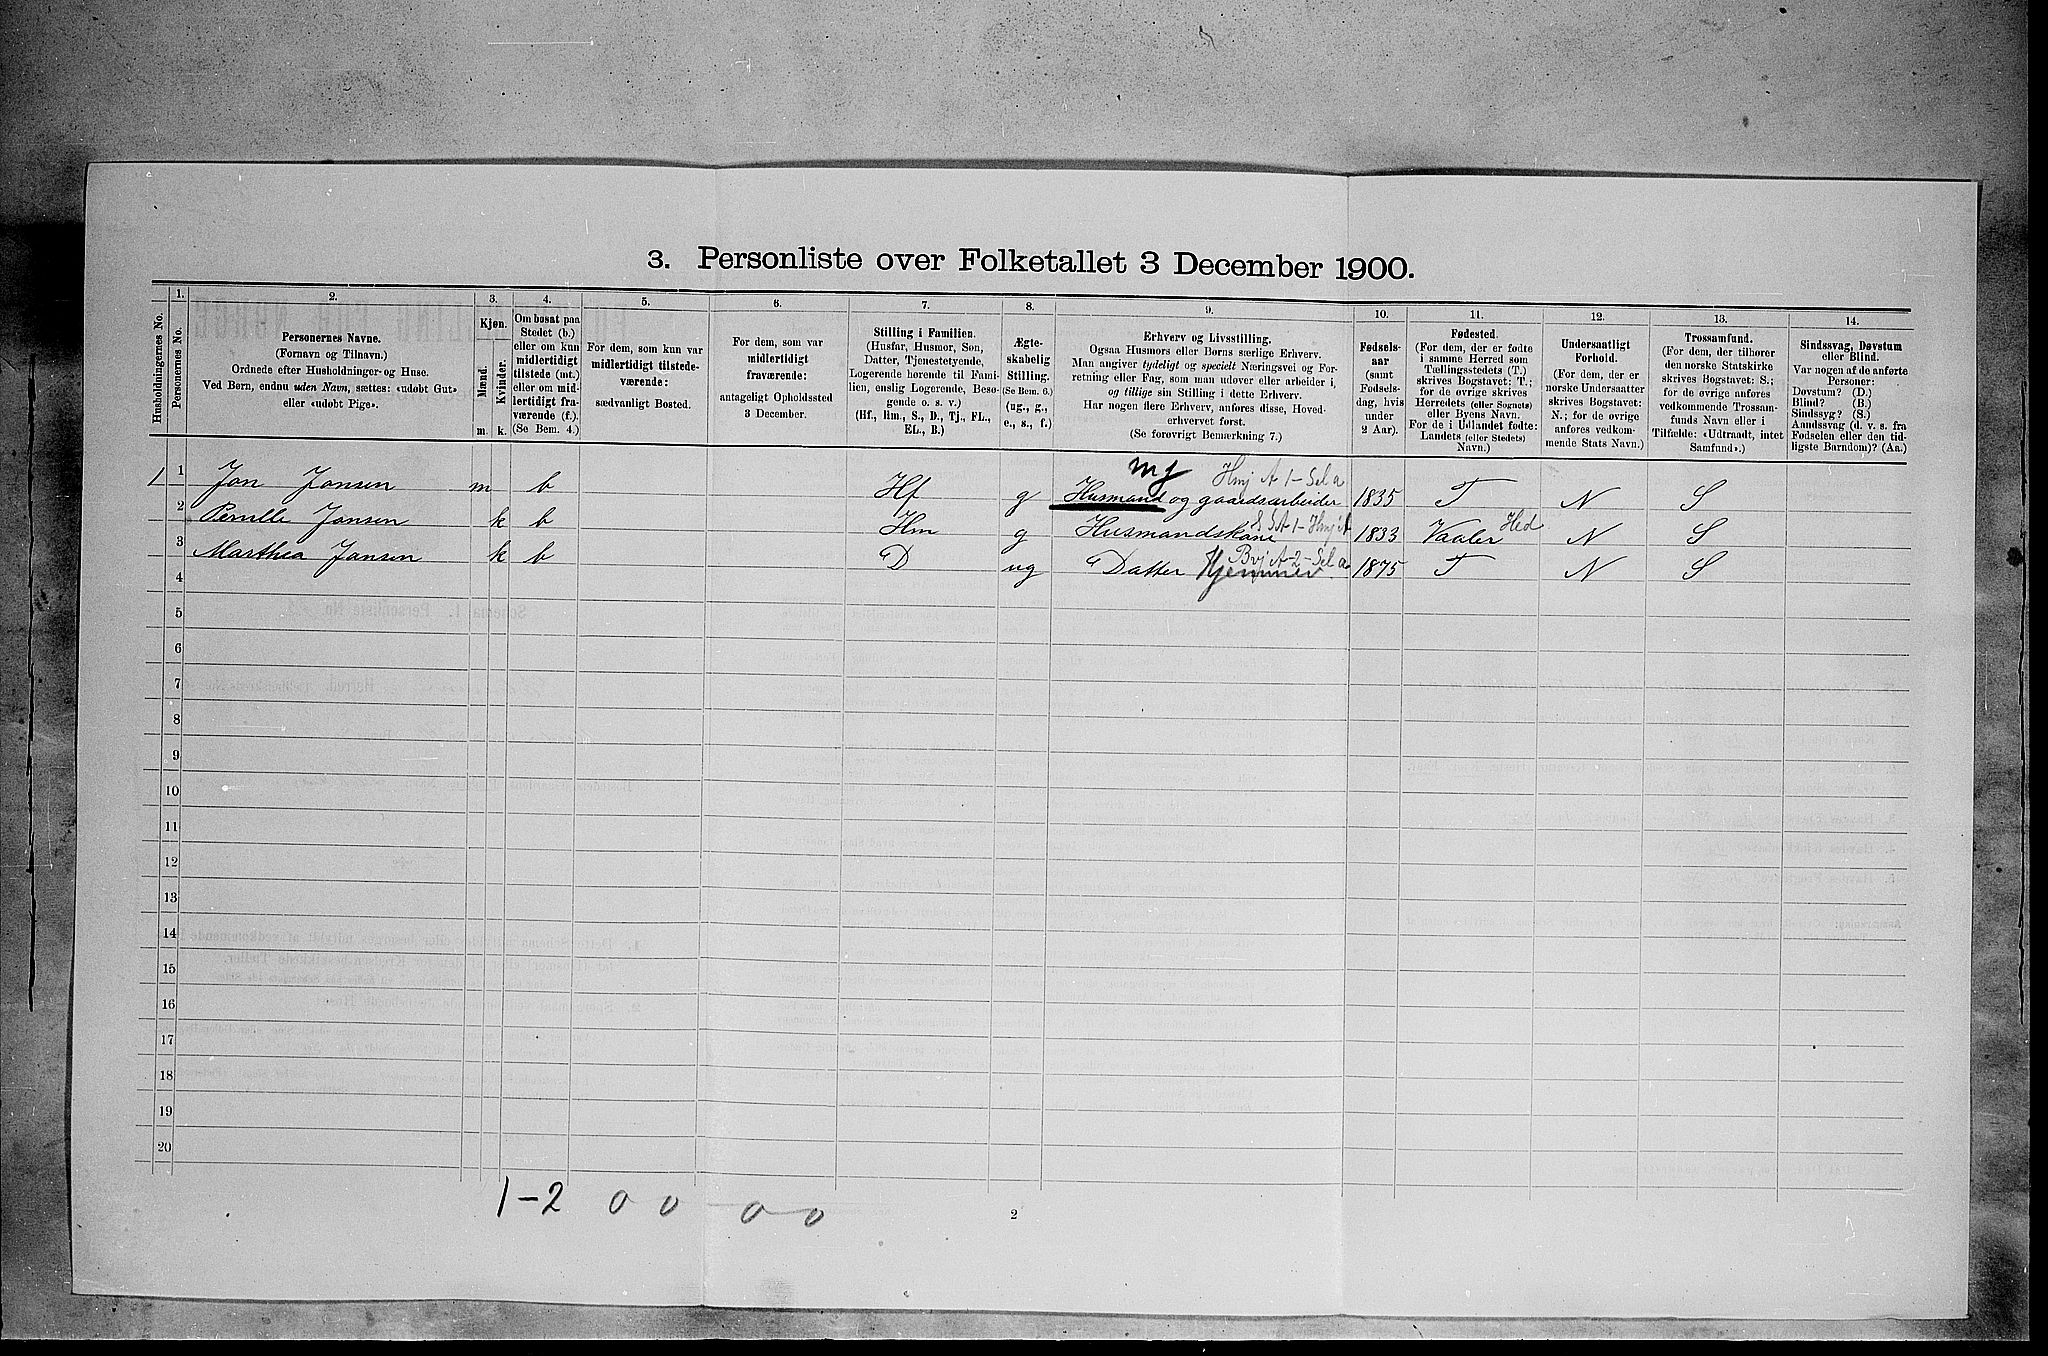 3. Personliste over Folketallet 3 December 1900.
Husholdningernes No.
1.
Personernes No.
2.
Personernes Navne.
(Fornavn og Tilnavn.)
Ordnede efter Husholdninger og Huse.
Ved Børn, endnu uden Navn, sættes: «udøbt Gut»
eller «udøbt Pige».
3.
Kjøn.
Mænd.
Kvinder.
m. k.
4.
Om bosat paa
Stedet (b.)
eller om kun
midlertidigt
tilstede (mt.)
eller om mid-
lertidigt fra-
værende (f.).
(Se Bem. 4.)
5.
For dem, som kun var
midlertidigt tilstede-
værende:
sædvanligt Bosted.
6.
For dem, som var
midlertidigt
fraværende:
antageligt Opholdssted
3 December.
7.
Stilling i Familien.
(Husfar, Husmor, Søn,
Datter, Tjenestetyende,
Logerende hørende til Fami-
lien, enslig Logerende, Besø-
gende o. s. v.)
(Hf., Hm., S., D., Tj., FL.,
EL., B.)
8.
Ægte-
skabelig
Stilling.
(Se Bem. 6.)
(ug., g.,
e., s., f.)
9.
Erhverv og Livsstilling.
Ogsaa Husmors eller Børns særlige Erhverv.
Man angiver tydeligt og specielt Næringsvei og For-
retning eller Fag, som man udøver eller arbeider i,
og tillige sin Stilling i dette Erhverv.
Har nogen flere Erhverv, anføres disse, Hoved-
erhvervet først.
(Se forøvrigt Bemærkning 7.)
10.
Fødsels-
aar
(samt
Fødsels-
dag, hvis
under
2 Aar).
11.
Fødested.
(For dem, der er fødte
i samme Herred som
Tællingsstedets (T.)
skrives Bogstavet: T.;
for de øvrige skrives
Herredets (eller Sognets)
eller Byens Navn.
For de i Udlandet fødte:
Landets (eller Stedets)
Navn.)
12.
Undersaatligt
Forhold.
(For dem, der er
norske Undersaatter
skrives Bogstavet:
N.; for de øvrige
anføres vedkom-
mende Stats Navn.)
13.
Trossamfund.
(For dem, der tilhører
den norske Statskirke
skrives Bogstavet: S.;
for de øvrige anføres
vedkommende Trossam-
funds Navn eller i
Tilfælde: «Udtraadt, intet
Samfund».)
14.
Sindssvag, Døvstum
eller Blind.
Var nogen af de anførte
Personer:
Døvstum? (D.)
Blind? (B.)
Sindssyg? (S.)
Aandssvag (d. v. s. fra
Fødselen eller den tid-
ligste Barndom)? (Aa.)
mg Hmj A 1 - Sel a
1 1 Jon Jonsen m b Hf g Husmand og gaardsarbeider 1835 T N S
2 Pernille Jonsen k b Hm g Husmandskone 1833 Vaaler Hed N S
3 Marthea Jonsen k b D ug Datter Hjemmev. 1875 T N S
4
5
6
7
8
9
10
11
12
13
14
15
16
17
18
19
20
1-2 0 0 0 0
2